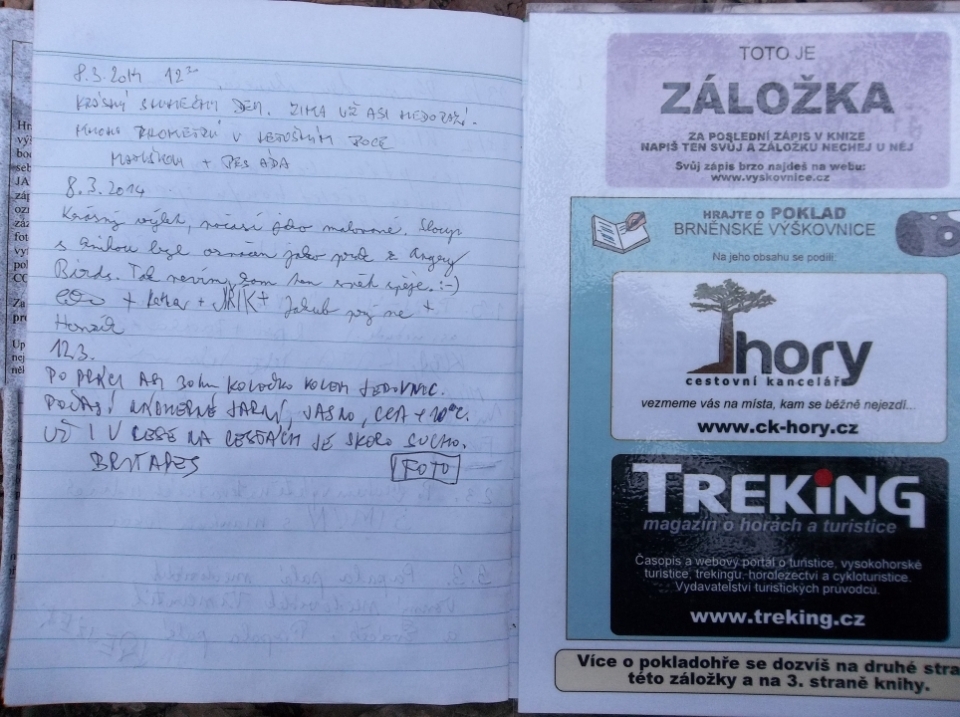 8.3.2014
KRÁSNÝ SLUNEČNÝ DEN. ZIMA UŽ ASI NEDORAZÍ.
MNOHO KILOMETRŮ V LETOŠNÍM ROCE
+ PES ÁDA
8.3.2014
Krásný výlet, počasí jako malované. Sloup
s knihou byl označen jako prak z Angry
Birds. Tak nevím, kam ten svět spěje. :-)
+ Katka + JIŘÍK + Jakub +
Honzík
12.3.
PO PRÁCI ASI 30km KOLEČKO KOLEM JEDOVNIC.
POČASÍ NÁDHERNÉ JARNÍ, JASNO, CCA +10°C.
UŽ I V LESE NA CESTÁCH JE SKORO SUCHO.
FOTO
TOTO JE
ZÁLOŽKA
ZA POSLEDNÍ ZÁPIS V KNIZE
NAPIŠ TEN SVŮJ A ZÁLOŽKU NECHEJ U NĚJ
Svůj zápis brzo najdeš na webu:
www.vyskovnice.cz
HRAJTE O POKLAD
BRNĚNSKÉ VÝŠKOVNICE
Na jeho obsahu se podílí
hory
cestovní kancelář
vezmeme vás na místa, kam se běžně nejezdí...
www.ck-hory.cz
TREKiNG
magazín o horách a turistice
Časopis a webový portál o turistice, vysokohorské
turistice, trekingu, horolezectví a cykloturistice.
Vydavatelství turistických průvodců.
www.treking.cz
Více o pokladohře se dozvíš na druhé stra
této záložky a na 3. straně knihy.